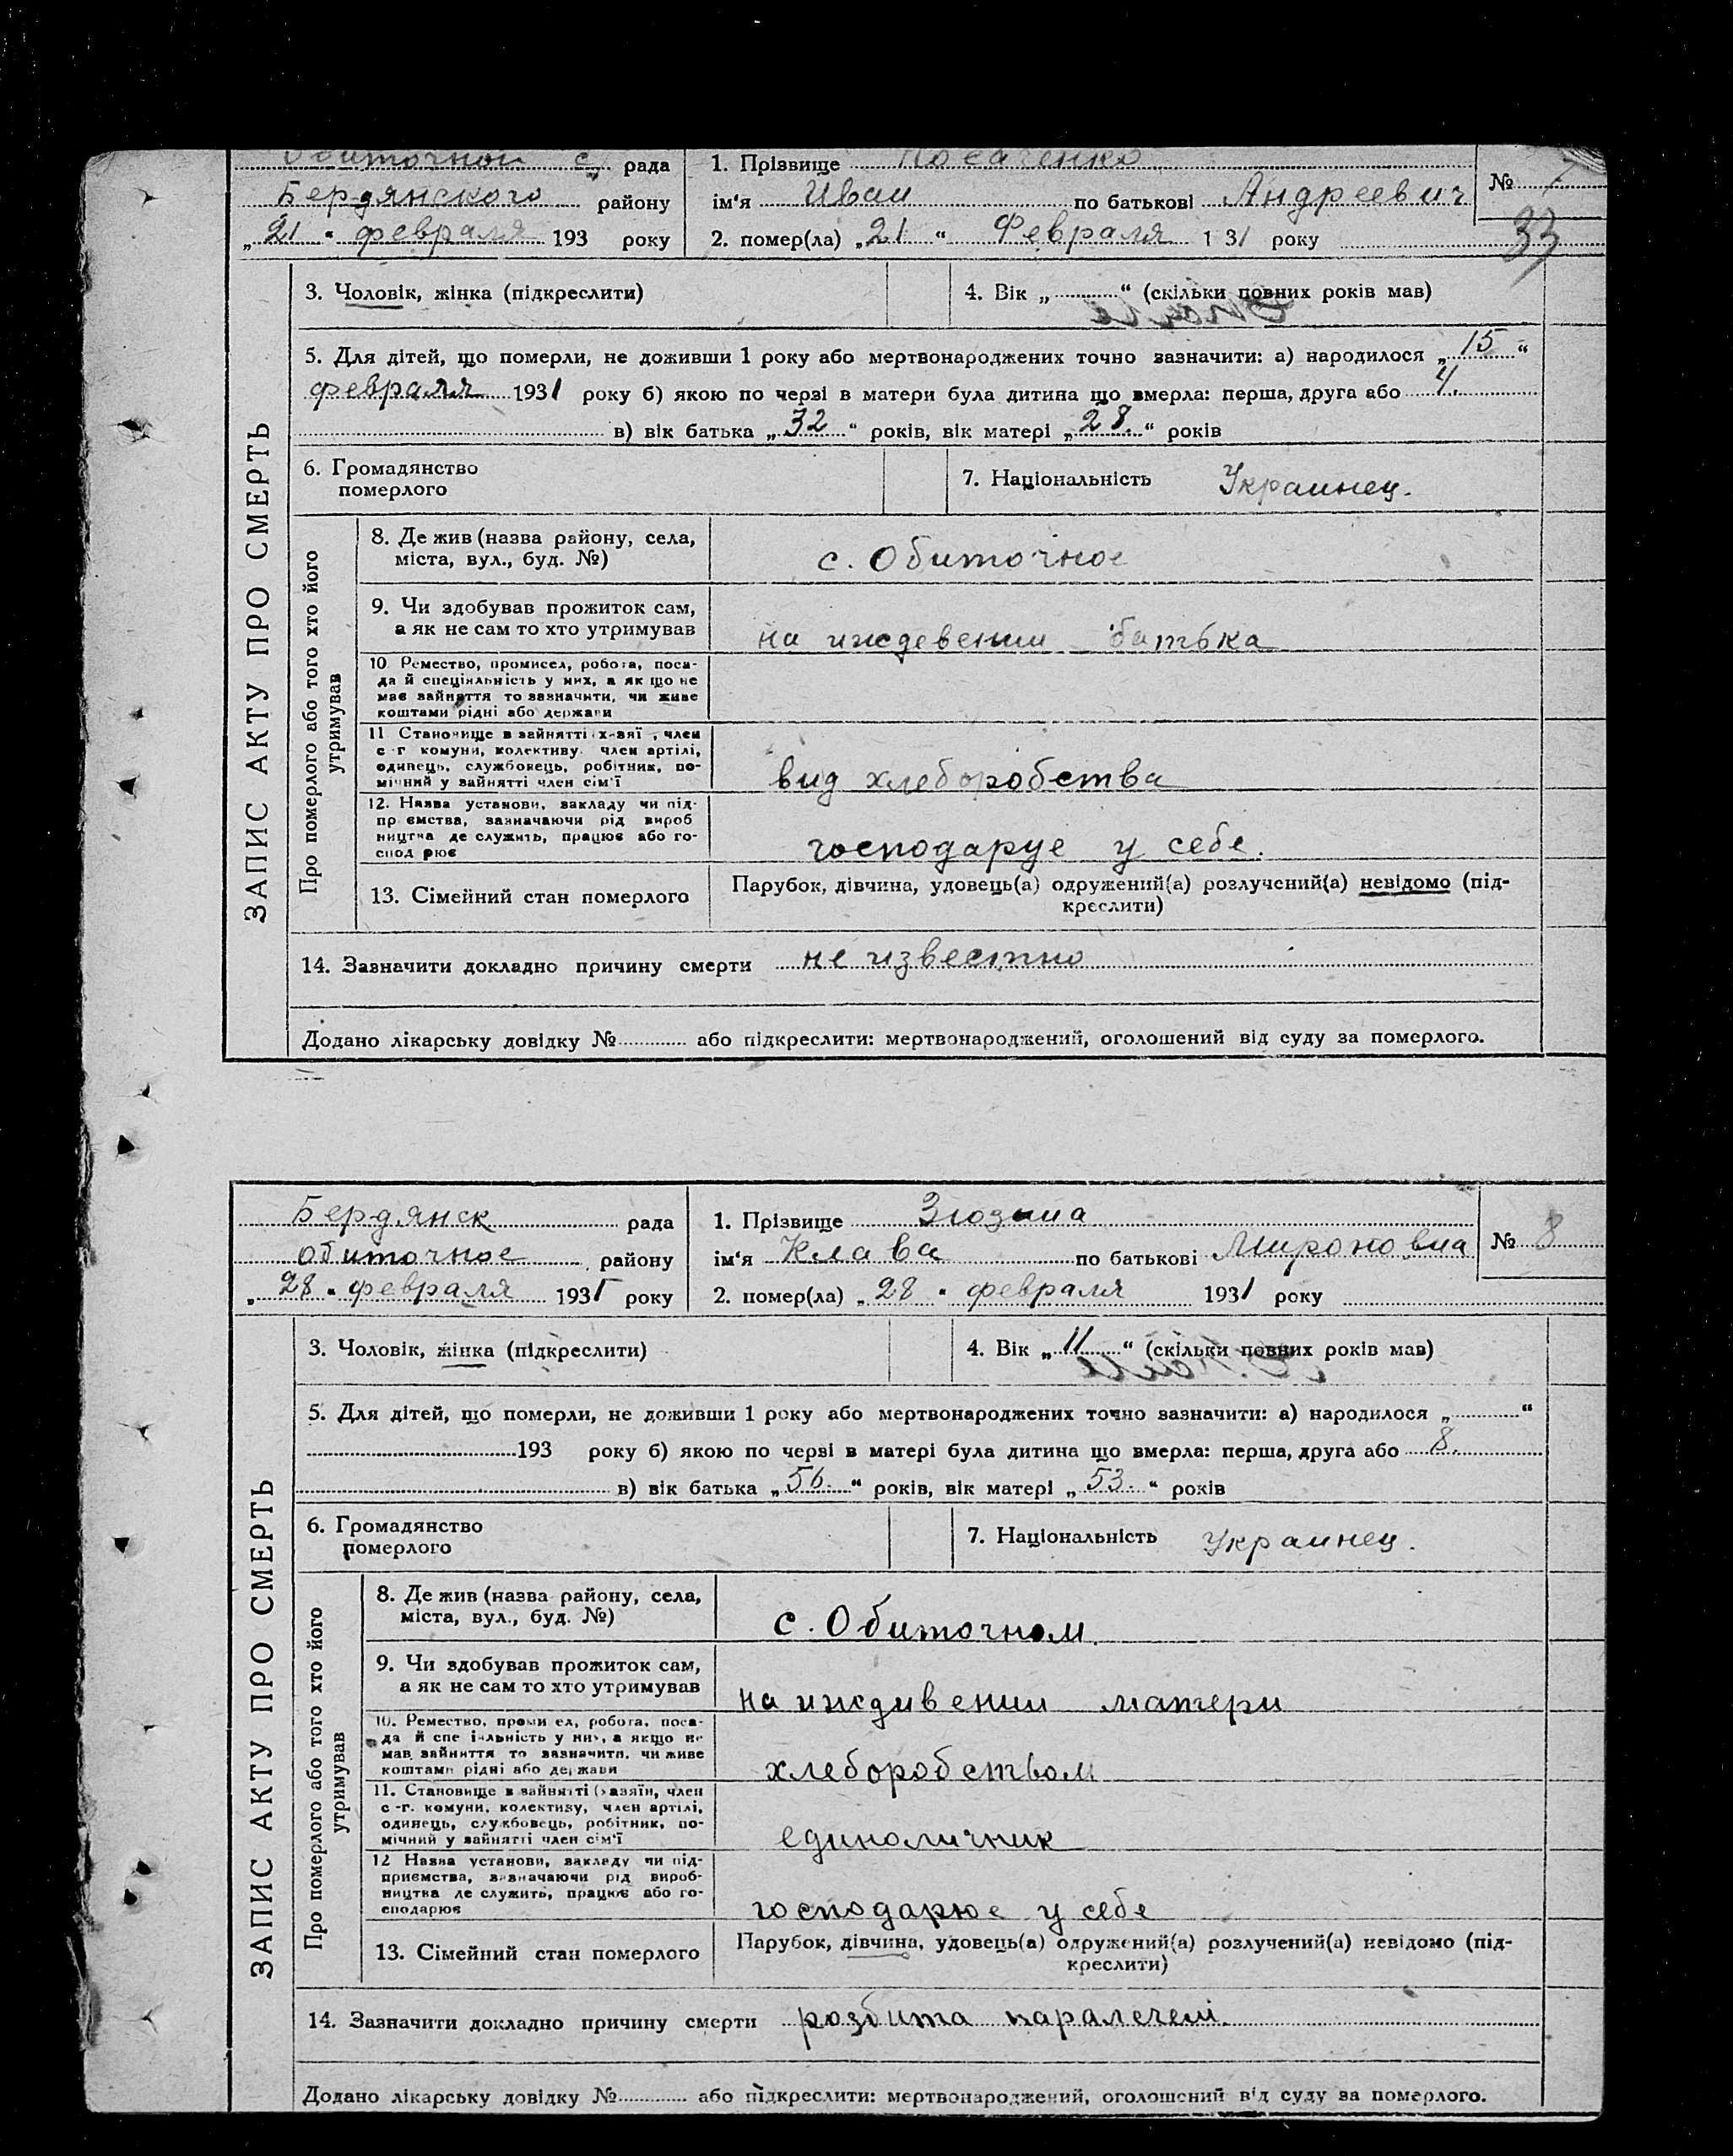 Обиточной с. рада
1. Прізвище
Бердянского району
ім'я Иван по батькові Андреевич
№ 7
„21“ февраля 193 року
2. помер(ла) „21“ Февраля 1 31 року
33
ЗАПИС АКТУ ПРО СМЕРТЬ
3. Чоловік, жінка (підкреслити)
4. Вік „ “ (скільки повних років мав)
5. Для дітей, що померли, не доживши 1 року або мертвонароджених точно зазначити: а) народилося „15“
февраля 1931 року б) якою по черзі в матери була дитина що вмерла: перша, друга або 4.
в) вік батька „32“ років, вік матері „28.“ років
6. Громадянство
померлого
7. Національність Украинец.
Про померлого або того хто його
утримував
8. Де жив (назва району, села,
міста, вул., буд. №)
с. Обиточное
9. Чи здобував прожиток сам,
а як не сам то хто утримував
на иждевении батька
10. Ремество, промисел, робота, поса-
да й спеціяльність у них, а як що не
має зайняття то зазначити, чи живе
коштами рідні або держави
11 Становище в зайнятті х-зяї , член
с-г комуни, колективу. член артілі,
одинець, службовець, робітник, по-
мічний у зайнятті член сім'ї
вид хлеборобства
12. Назва установи, закладу чи під-
пр ємства, зазначаючи рід вироб
ництва де служить, працює або го-
спод рює
господаруе у себе.
13. Сімейний стан померлого
Парубок, дівчина, удовець(а) одружений(а) розлучений(а) невідомо (під-
креслити)
14. Зазначити докладно причину смерти не известно
Додано лікарську довідку № або підкреслити: мертвонароджений, оголошений від суду за померлого.
Бердянск рада
1. Прізвище Зюзина
обиточное району
ім'я Клава по батькові Мироновна
№ 8
„28“ февраля 1931 року
2. помер(ла) „28“ февраля 1931 року
ЗАПИС АКТУ ПРО СМЕРТЬ
3. Чоловік, жінка (підкреслити)
4. Вік „11“ (скільки повних років мав)
5. Для дітей, що померли, не доживши 1 року або мертвонароджених точно зазначити: а) народилося „ “
193 року б) якою по черзі в матері була дитина що вмерла: перша, друга або 8.
в) вік батька „56.“ років, вік матері „53.“ років
6. Громадянство
померлого
7. Національність Украинец.
Про померлого або того хто його
утримував
8. Де жив (назва району, села,
міста, вул., буд. №)
с. Обиточном.
9. Чи здобував прожиток сам,
а як не сам то хто утримував
на иждивении матери
10. Ремество, проми ел, робота, поса-
да й спе іяльність у них, а якщо не
мав зайняття то зазначити, чи живе
коштами рідні або держави
хлеборобством
11. Становище в зайнятті (хазяїн, член
с-г. комуни, колективу, член артілі,
одинець, службовець, робітник, по-
мічний у зайнятті член сім'ї
единоличник
12 Назва установи, закладу чи під-
приємства, зазначаючи рід вироб-
ництва де служить, працює або го-
сподарює
господарює у себе
13. Сімейний стан померлого
Парубок, дівчина, удовець(а) одружений(а) розлучений(а) невідомо (під-
креслити)
14. Зазначити докладно причину смерти розбита паралечем.
Додано лікарську довідку № або підкреслити: мертвонароджений, оголошений від суду за померлого.